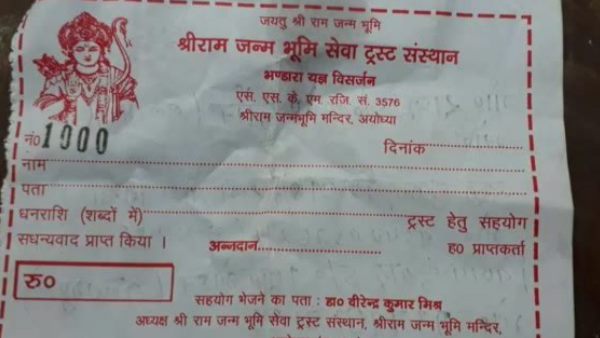 जयतु श्री राम जन्म भूमि
श्रीराम जन्म भूमि सेवा ट्रस्ट संस्थान
भण्डारा यज्ञ विसर्जन
एस. एस. के. एम. रजि. सं. 3576
श्रीराम जन्मभूमि मन्दिर, अयोध्या
नं० 1000 दिनांक
नाम
पता
धनराशि (शब्दों में) ट्रस्ट हेतु सहयोग
सधन्यवाद प्राप्त किया । अन्नदान ह० प्राप्तकर्ता
रु०
सहयोग भेजने का पता : डा० वीरेन्द्र कुमार मिश्र
अध्यक्ष श्री राम जन्म भूमि सेवा ट्रस्ट संस्थान, श्रीराम जन्म भूमि मन्दिर,